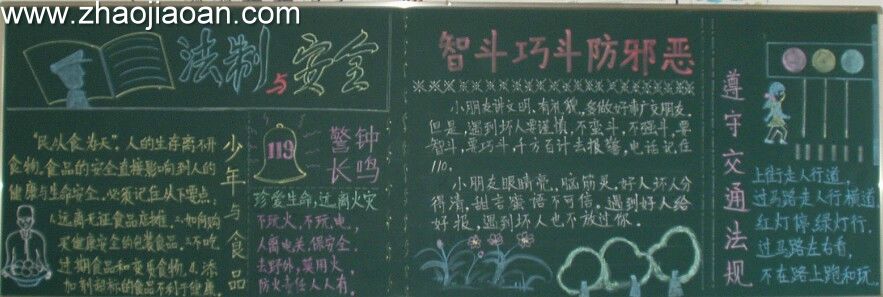 www.zhaojiaoan.com
法制与安全
"民以食为天"，人的生存离不开
食物，食品的安全直接影响到人的
健康与生命安全，必须记住以下要点：
1.远离无证食品店摊，二.如何购
买健康安全的包装食品，三.不吃
过期食品和变质食物，4.添
加剂超标的食品不利于健康。
少年与食品
119
警钟
长鸣
珍爱生命，远离火灾
不玩火，不玩电，
人离电关，保安全。
去野外，莫用火，
防火责任人人有。
智斗巧斗防邪恶
小朋友讲文明，有礼貌，多做好事广交朋友，
但是，遇到坏人要谨慎，不蛮斗，不强斗，要
智斗，要巧斗，千方百计去报警，电话记住
110。
小朋友眼睛亮，脑筋灵，好人坏人分
得清，甜言蜜语不可信，遇到好人给
好报，遇到坏人也不放过你。
遵守交通法规
上街走人行道，
过马路走人行横道，
红灯停，绿灯行，
过马路左右看，
不在路上跑和玩。